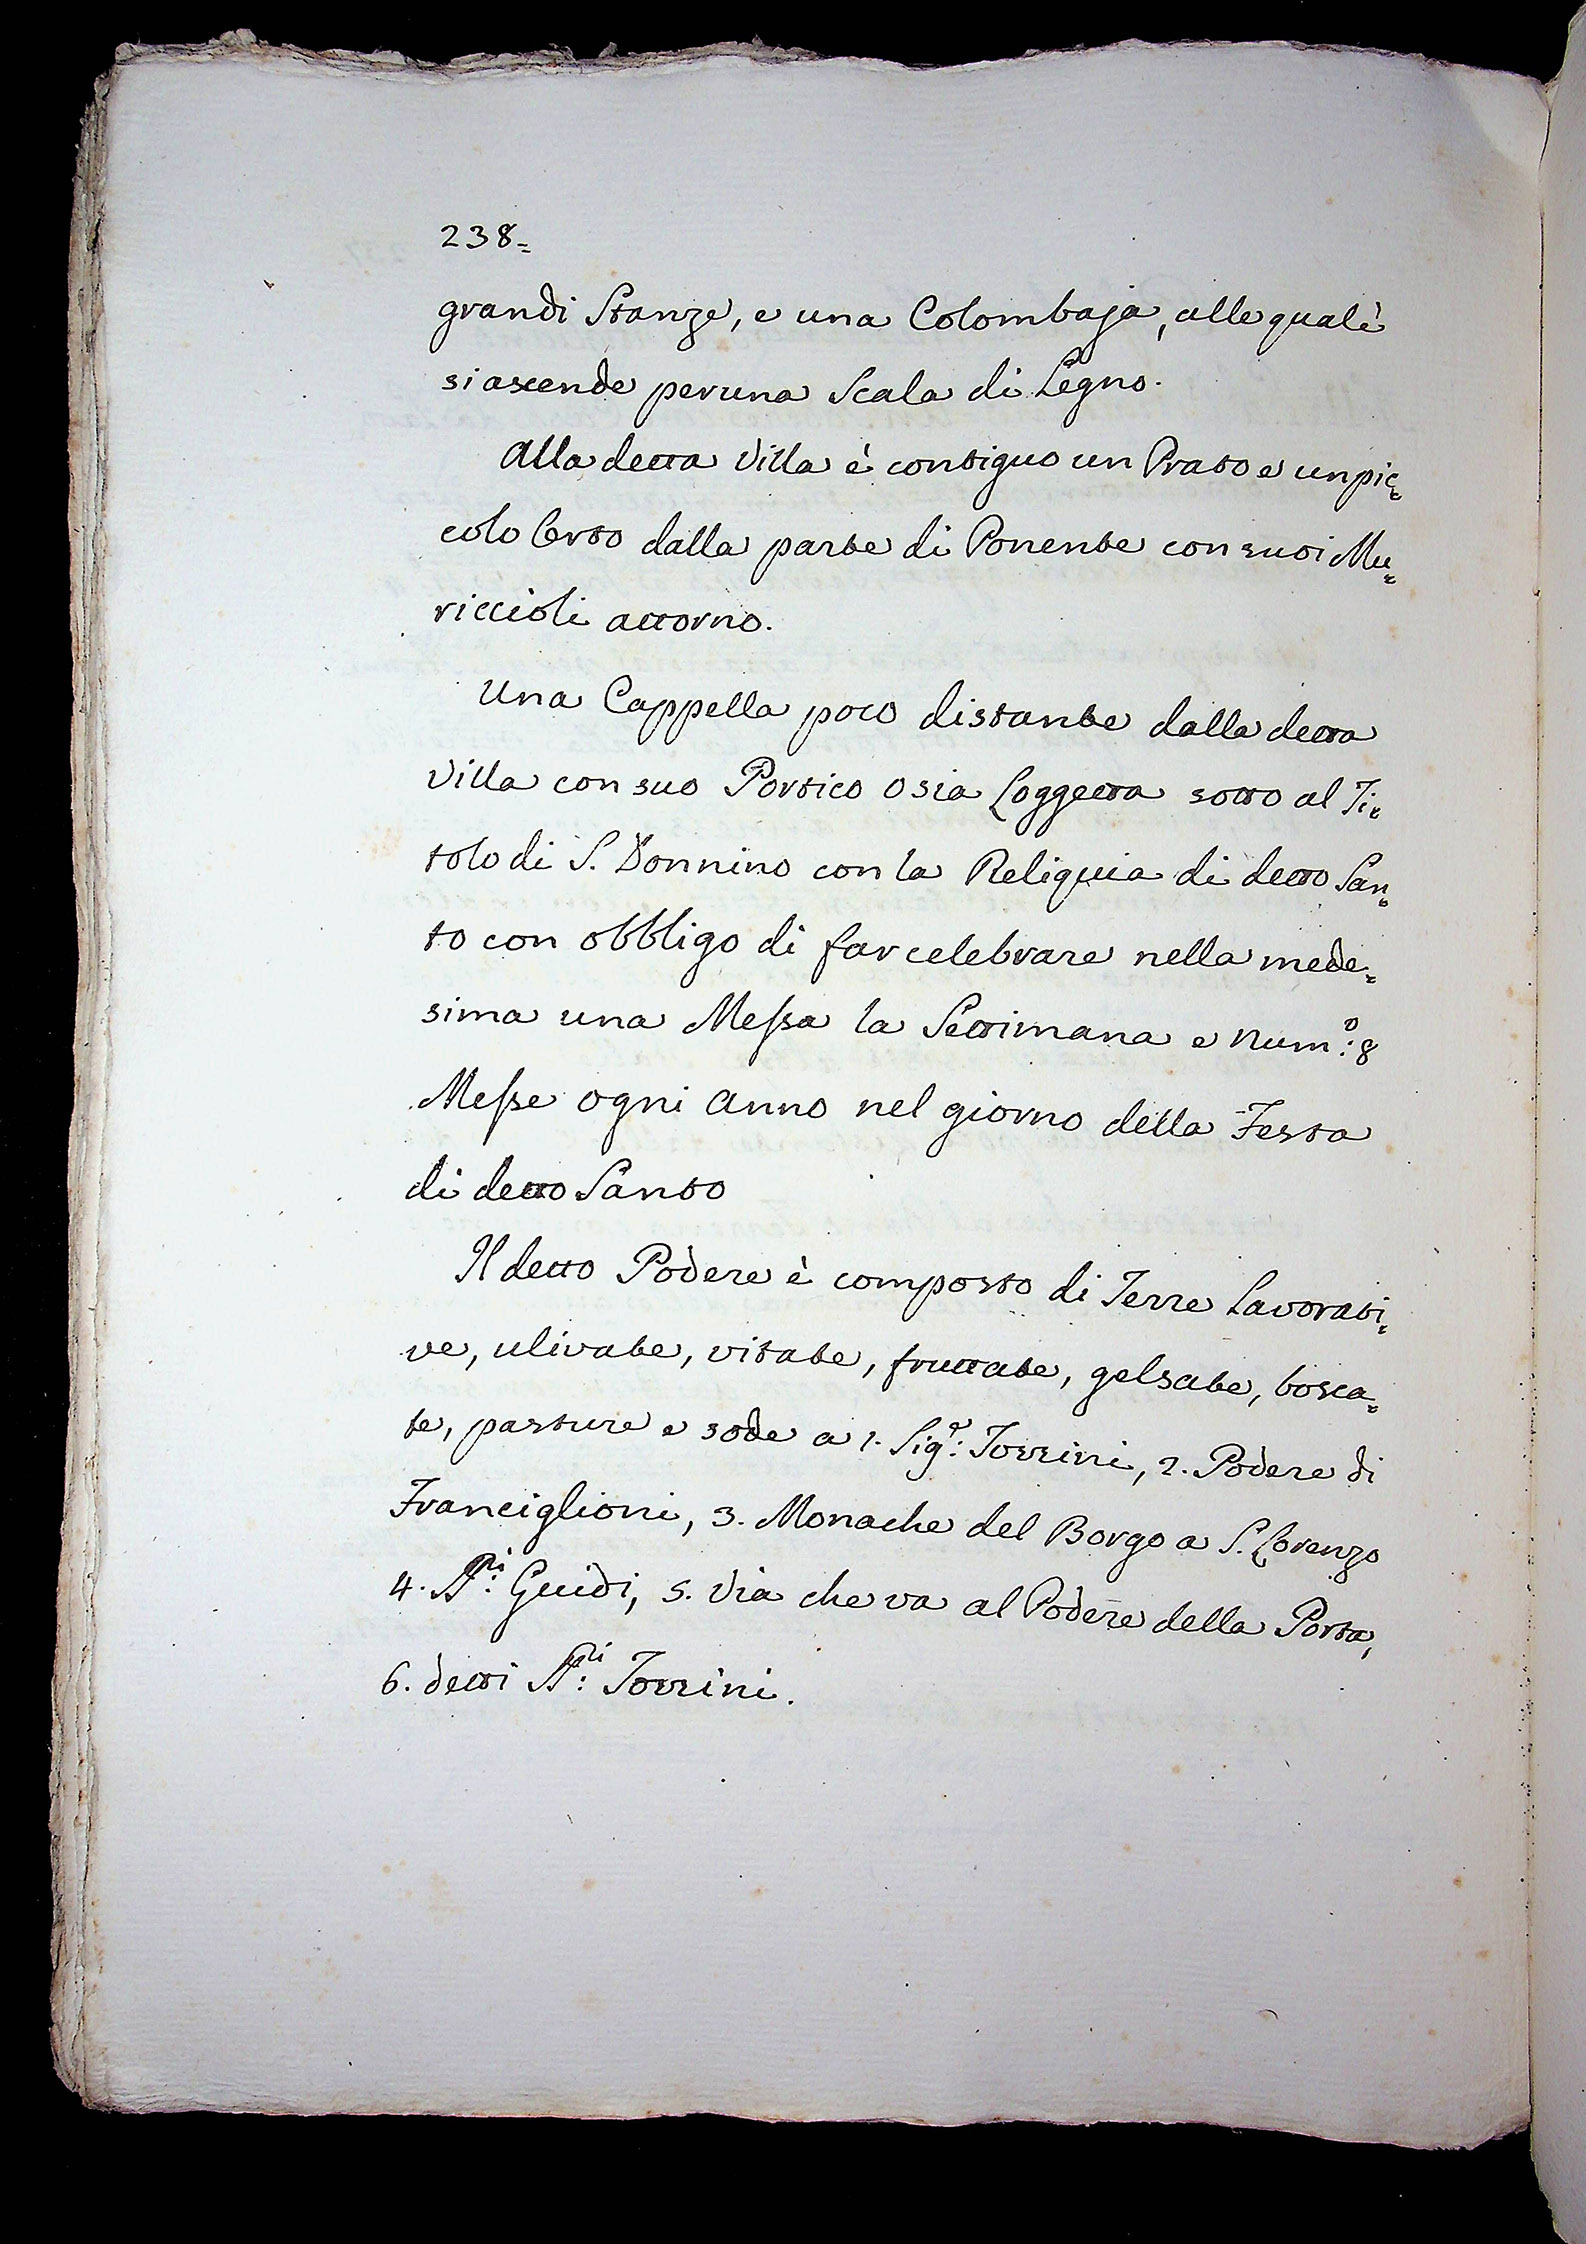 238=
grandi Stanze, e una Colombaja, alle quali
si ascende per una Scala di Legno.
Alla detta Villa è contiguo un Prato e un pic=
colo Orto dalla parte di Ponente con suoi Mu=
riccioli attorno.
Una Cappella poco distante dalla detta
Villa con suo Portico o sia Loggetta sotto al Ti=
tolo di S. Donnino con la Reliquia di detto San=
to con obbligo di far celebrare nella mede=
sima una Messa la Settimana e Num:º 8
Messe ogni Anno nel giorno della Festa
di detto Santo
Il detto Podere è composto di Terre Lavorati=
ve, ulivate, vitate, fruttate, gelsate, bosca=
te, pasture e sode a 1. Sig:e Torrini, 2. Podere di
Franciglioni, 3. Monache del Borgo a S. Lorenzo
4. Guidi, 5. Via che va al Podere della Porta,
6. detti Torrini.